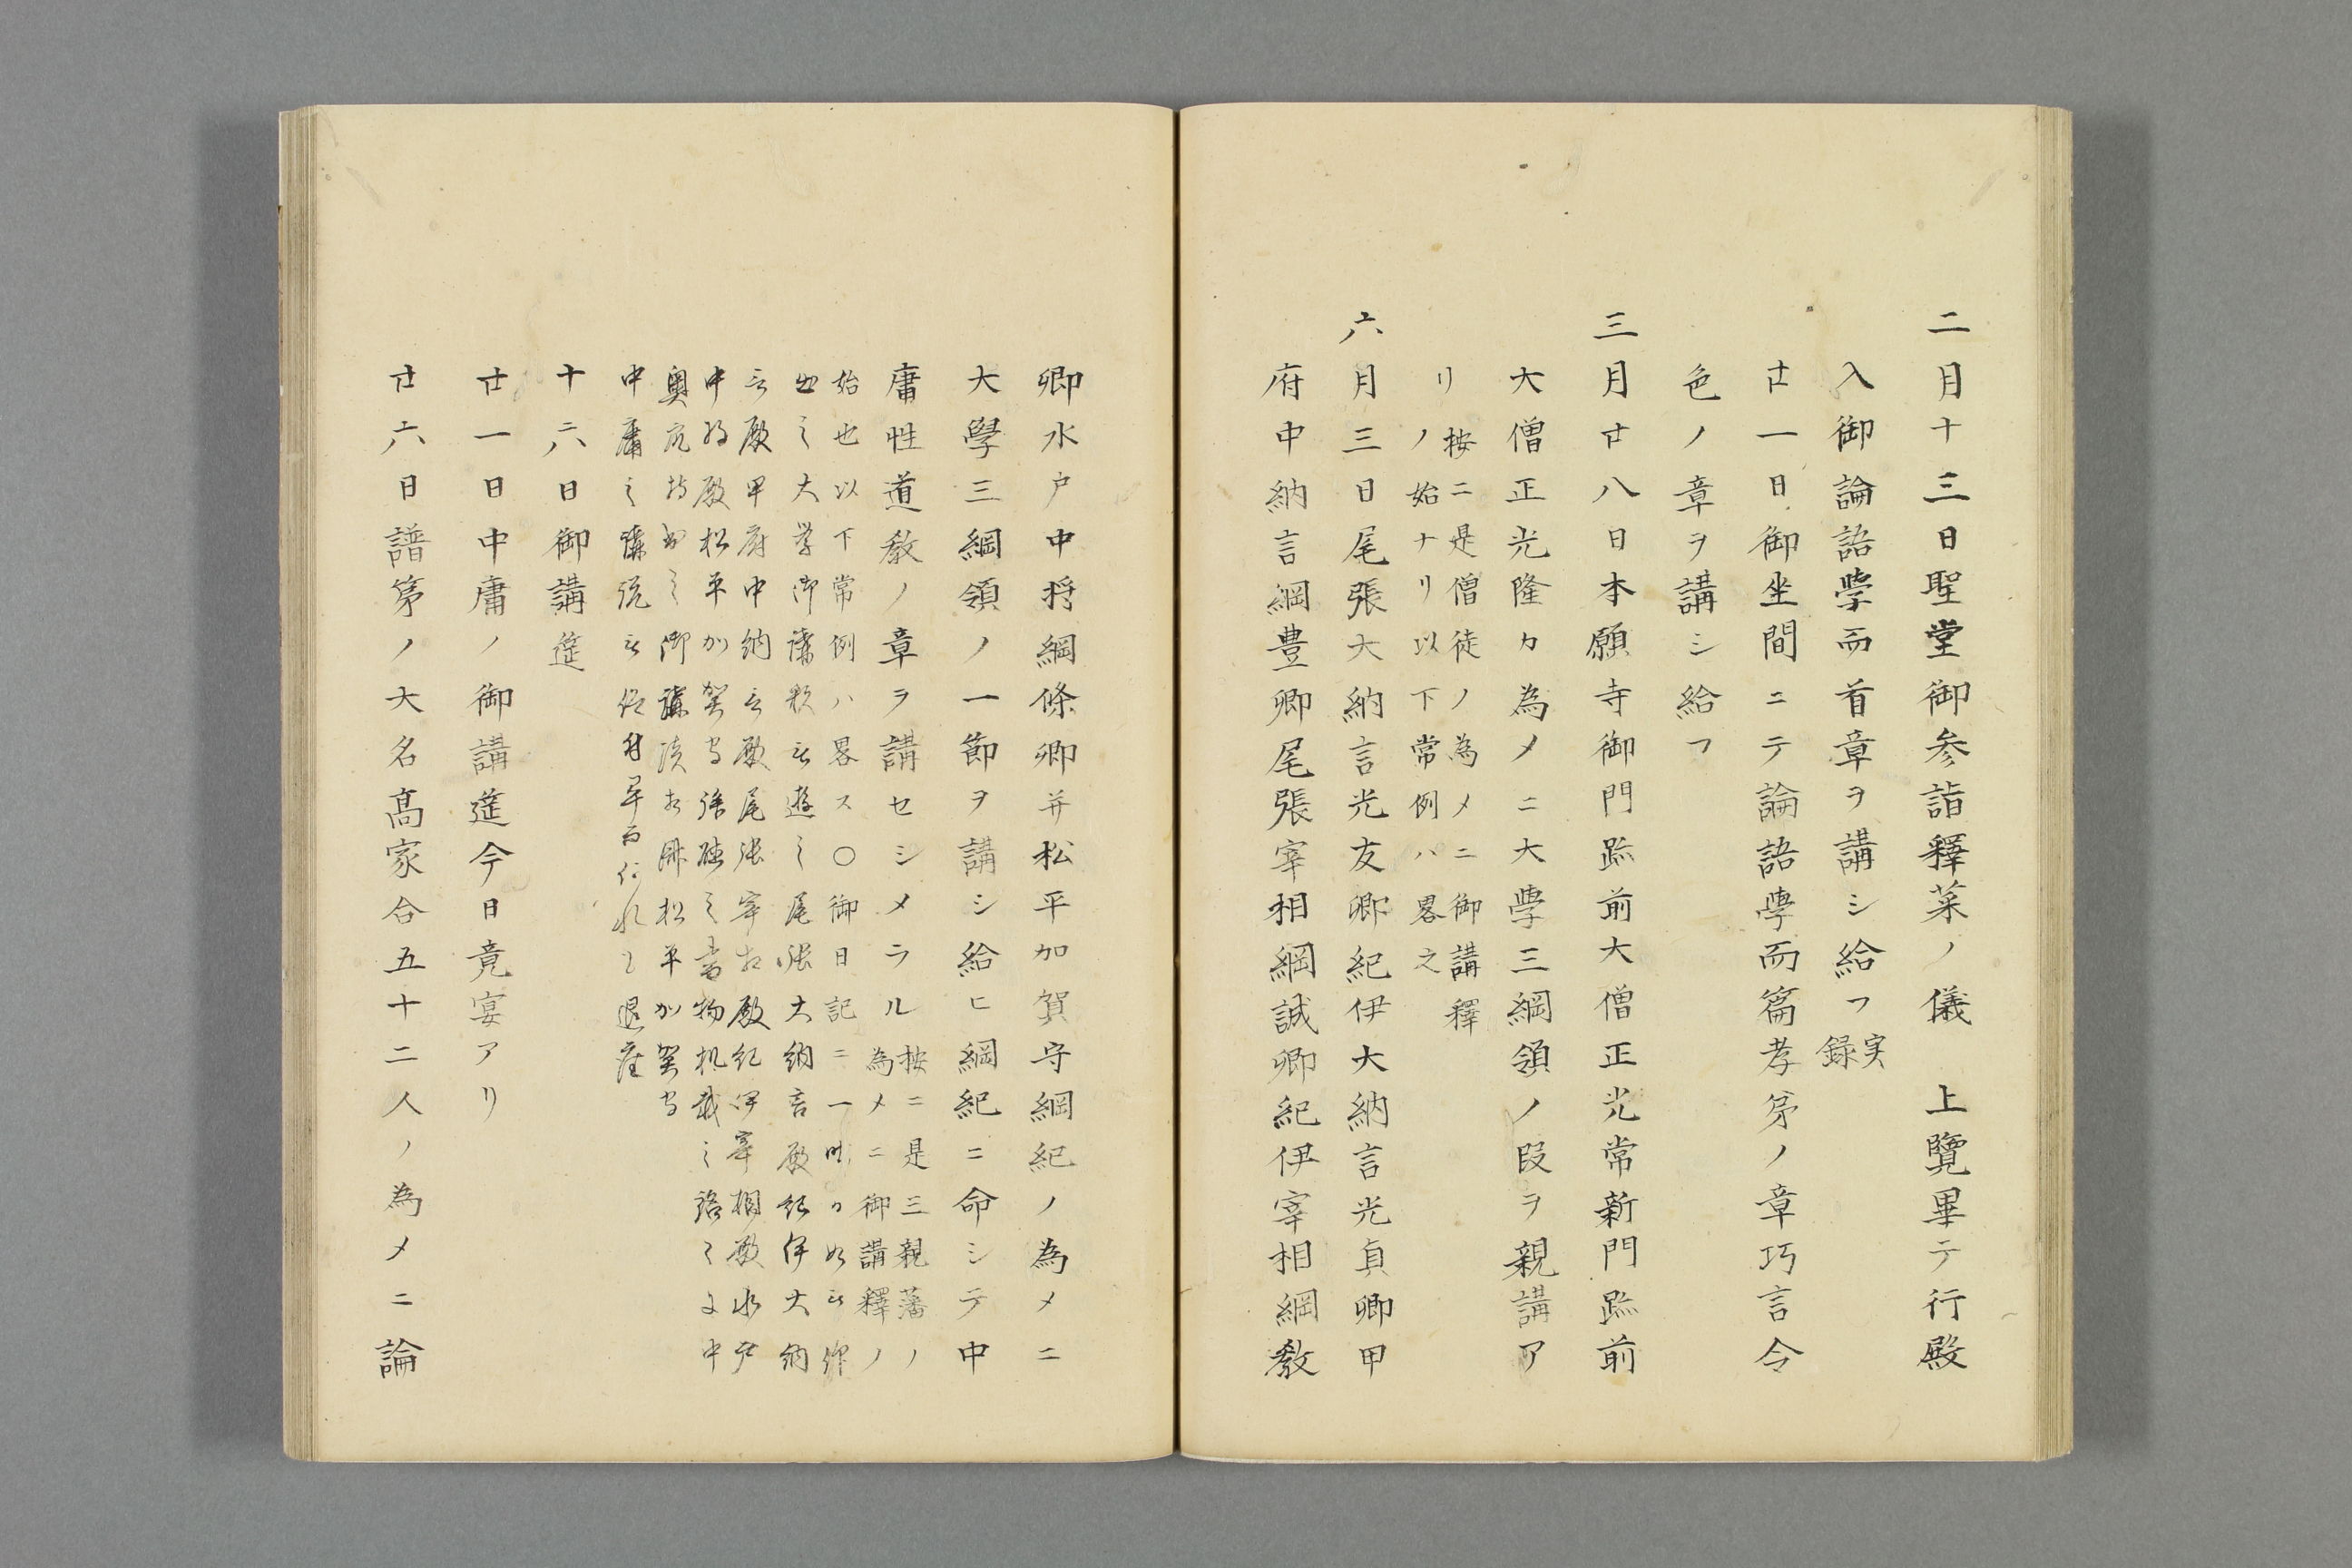 二月十三日聖堂御参詣釋菜ノ儀　上覽畢テ行殿
入御論語學而首章ヲ講シ給フ実録
廿一日御坐間ニテ論語學而篇孝弟ノ章巧言令
色ノ章ヲ講シ給フ
三月廿八日本願寺御門跡前大僧正光常新門跡前
大僧正光隆カ為メニ大學三綱領ノ段ヲ親講ア
リ
按ニ是僧徒ノ為メニ御講釋
ノ始ナリ以下常例ハ畧之
六月三日尾張大納言光友卿紀伊大納言光貞卿甲
府中納言綱豊卿尾張宰相綱誠卿紀伊宰相綱教
卿水戸中将綱條卿并松平加賀守綱紀ノ為メニ
大學三綱領ノ一節ヲ講シ給ヒ綱紀ニ命シテ中
庸性道教ノ章ヲ講セシメラル
按ニ是三親藩ノ
為メニ御講釋ノ
始也以下常例ハ畧ス〇御日記ニ一
出之大学御講釈被遊之尾張大納言殿紀伊大納
言殿甲府中納言殿尾張宰相殿紀伊宰相殿水戸
中将殿松平加賀守 書物机載之
奥 御講 松平加賀守
中庸之講 退座
十六日御講筵
廿一日中庸ノ御講筵今日竟宴アリ
廿六日譜第ノ大名髙家合五十二人ノ為メニ論